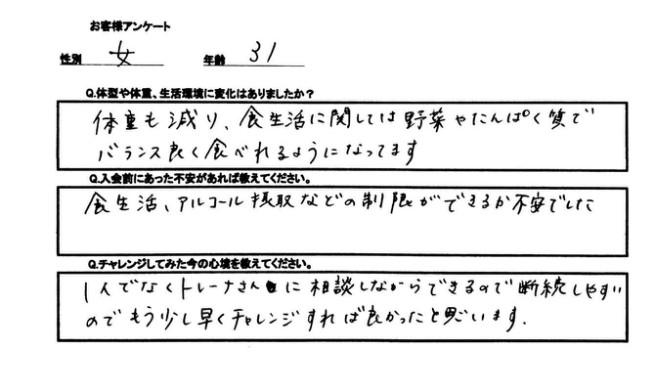 お客様アンケート
性別 女 年齢 31
Q.体型や体重、生活環境に変化はありましたか？
体重も減り、食生活に関しては野菜やたんぱく質で
バランス良く食べれるようになってます
Q.入会前にあった不安があれば教えてください。
食生活、アルコール摂取などの制限ができるか不安でした
Q.チャレンジしてみた今の心境を教えてください。
1人でなくトレーナーさんに相談しながらできるので断続しやすい
のでもう少し早くチャレンジすれば良かったと思います.